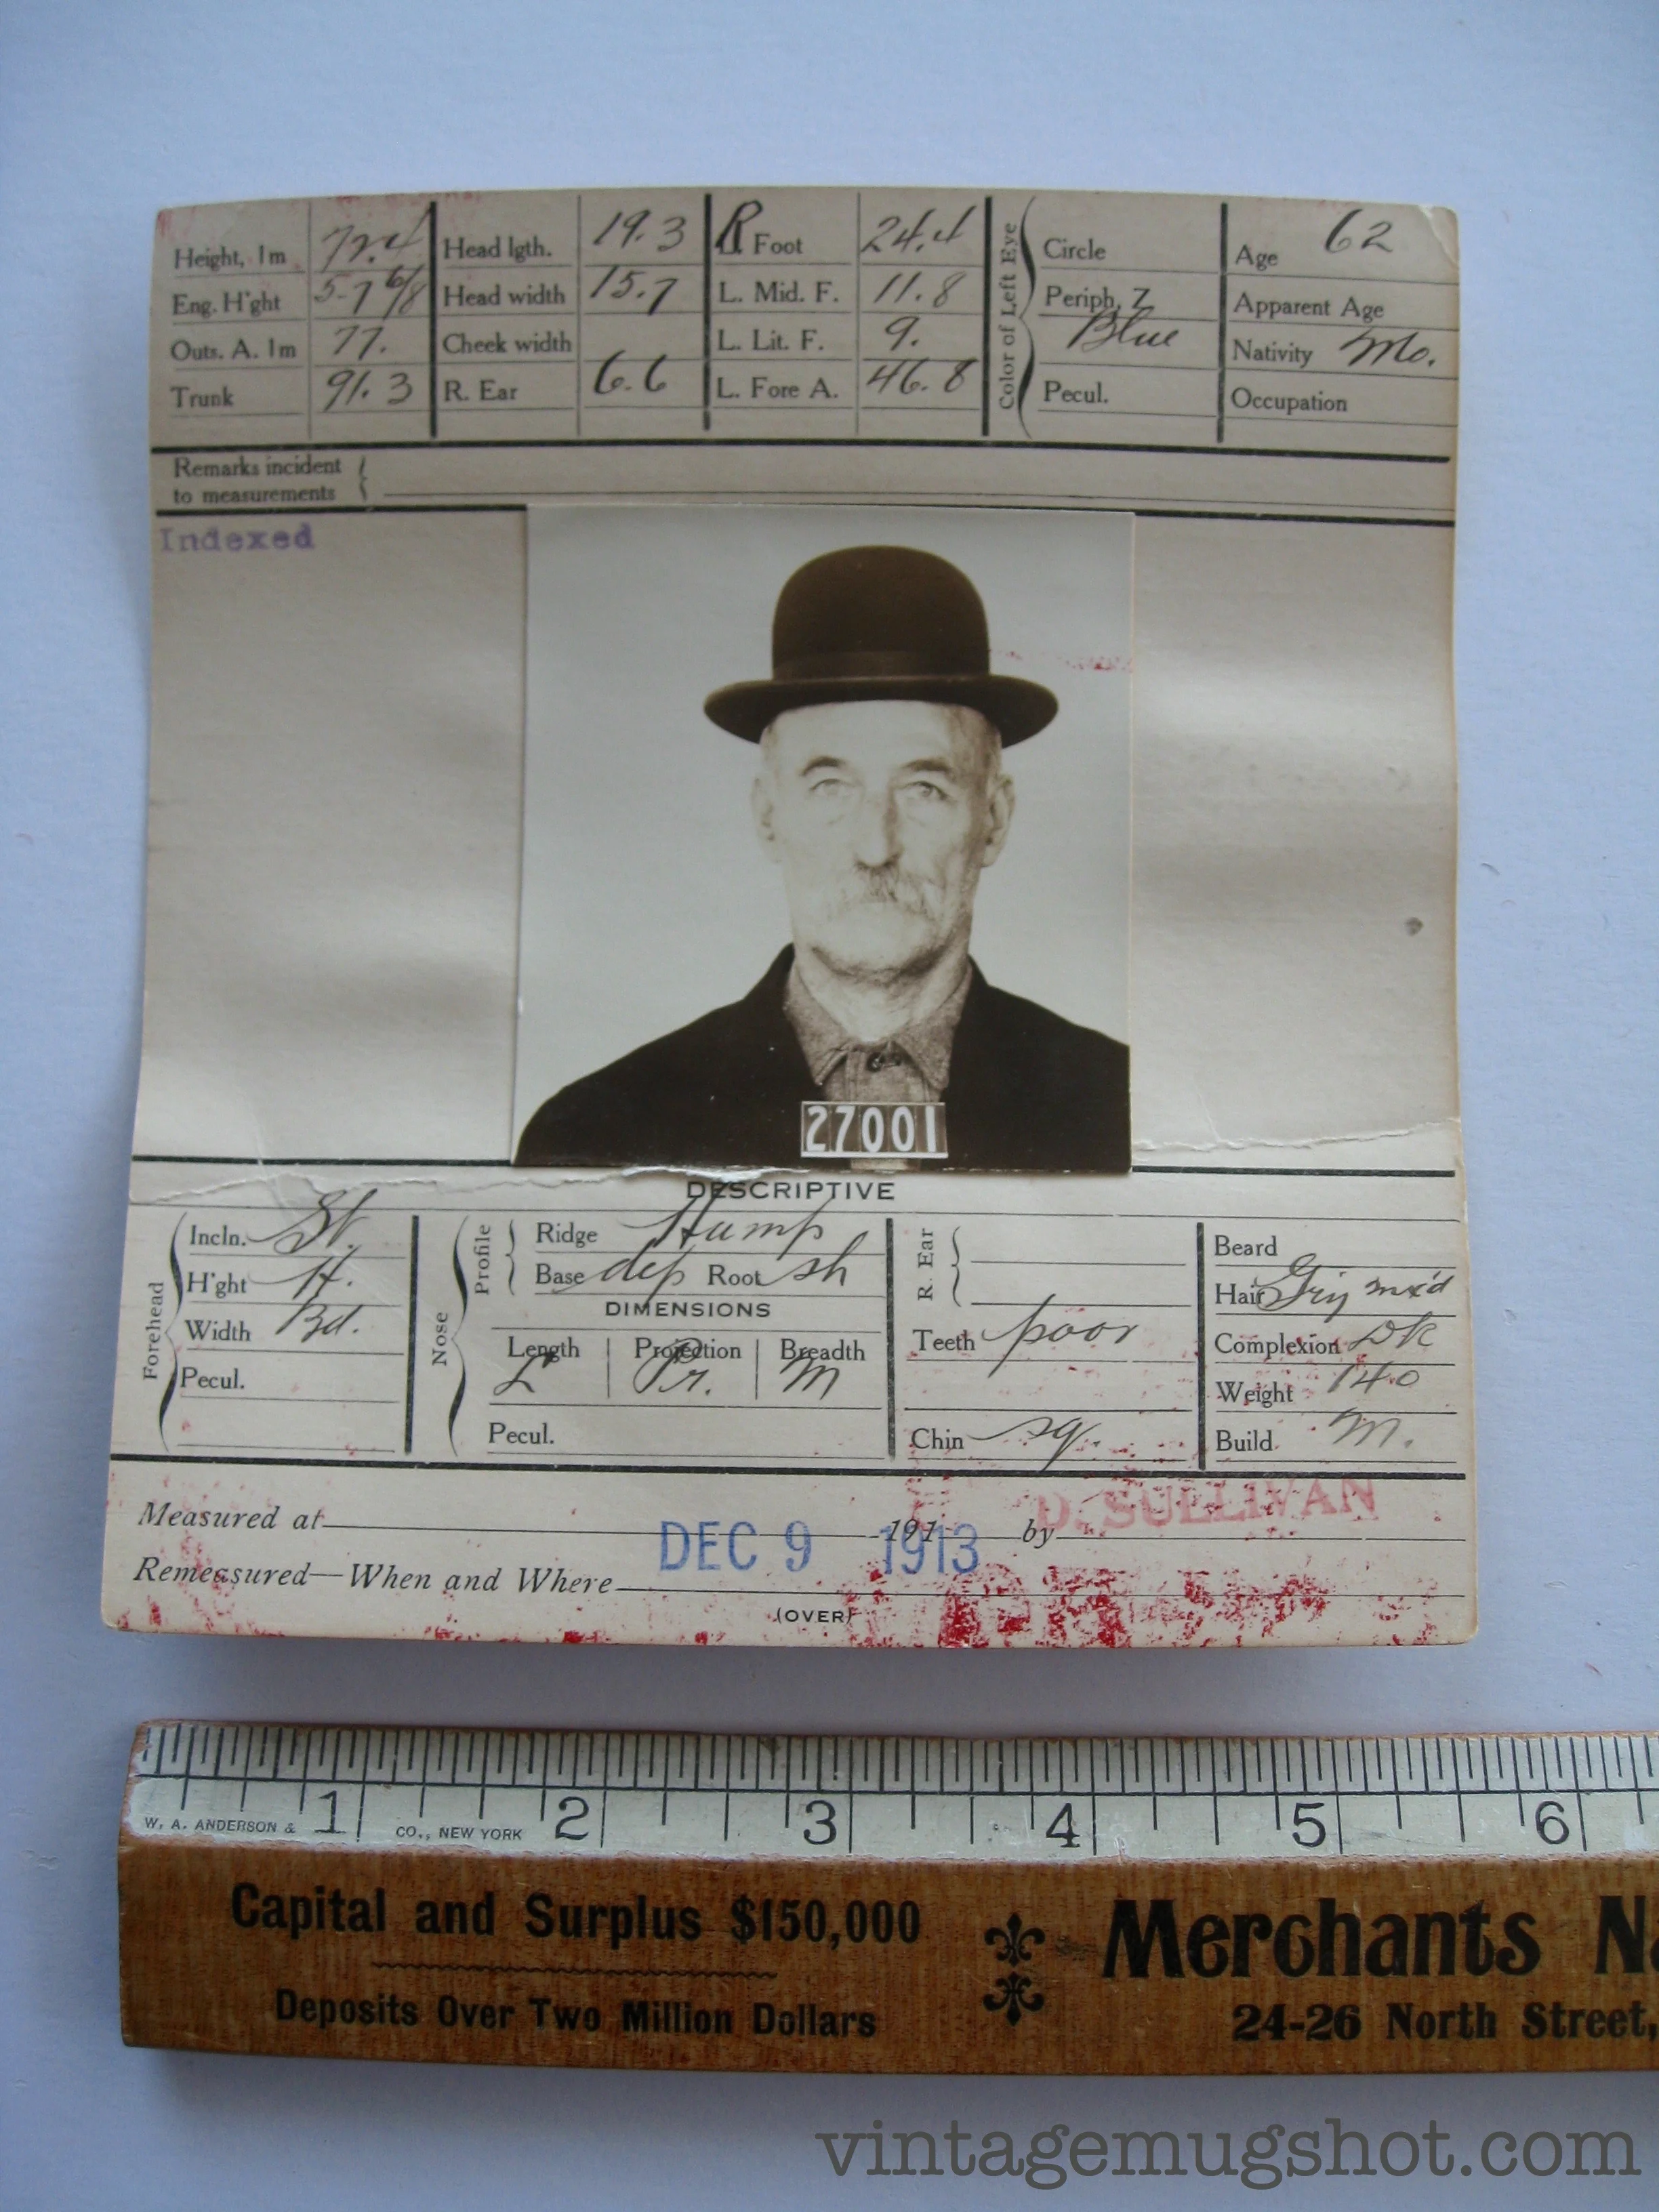 Height, 1m 72.4 Head lgth. 19.3 R. Foot 24.4 Circle Age 62
Eng. H'ght 5-7 6/8 Head width 15.7 L. Mid. F. 11.8 Periph. Z Apparent Age
Outs. A. 1m 77. Cheek width L. Lit. F. 9. Blue Nativity Mo.
Trunk 91.3 R. Ear 6.6 L. Fore A. 46.8 Pecul. Occupation
Color of Left Eye
Remarks incident
to measurements
Indexed
27001
DESCRIPTIVE
Forehead
Incln. St.
H'ght H.
Width Bd.
Pecul.
Nose
Profile
Ridge Hump
Base dep Root sh
DIMENSIONS
Length Projection Breadth
L Pr. M
Pecul.
R. Ear
Teeth poor
Chin sq.
Beard
Hair Gry mx'd
Complexion DK
Weight 140
Build M.
D. SULLIVAN
Measured at 191 by
DEC 9 1913
Remeasured—When and Where
(OVER)
1 2 3 4 5 6
W. A. ANDERSON & CO., NEW YORK
Capital and Surplus $150,000
Deposits Over Two Million Dollars
Merchants Na
24-26 North Street,
vintagemugshot.com